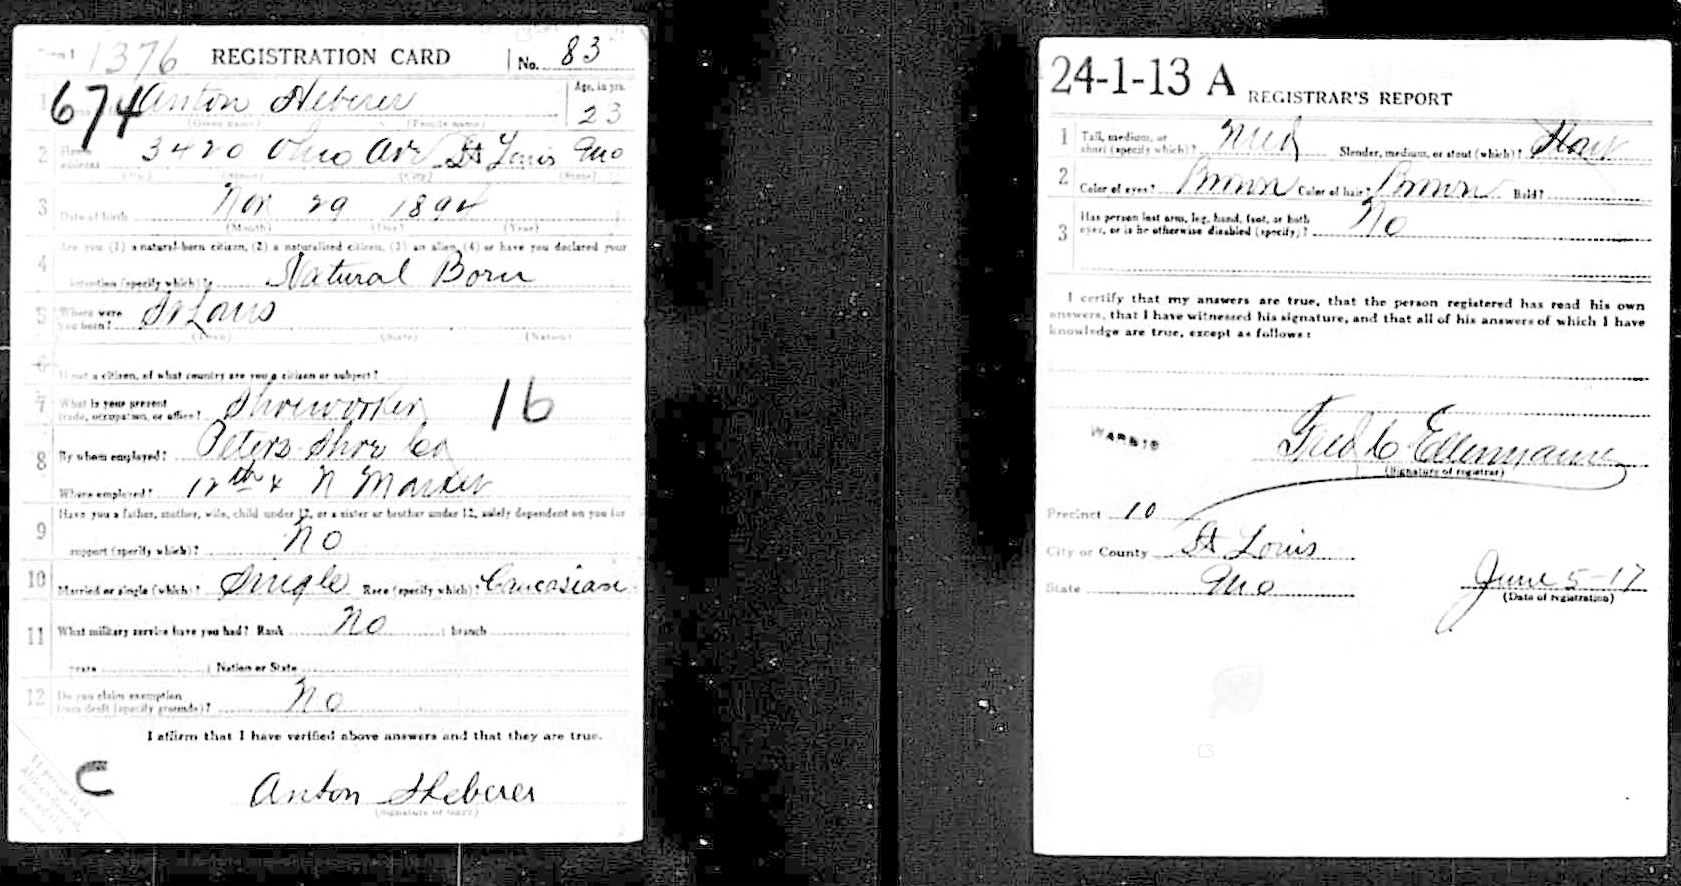 Form 1 1376 REGISTRATION CARD No. 83
674
1 Anton Heberer Age, in yrs. 23
(Given name) (Family name)
2 Home address 3420 Ohio Av St Louis Mo
(No.) (Street) (City) (State)
3 Date of birth Nov 29 1894
(Month) (Day) (Year)
Are you (1) a natural-born citizen, (2) a naturalized citizen, (3) an alien, (4) or have you declared your
4 intention (specify which)? Natural Born
5 Where were you born? St Louis
(Town) (State) (Nation)
6 If not a citizen, of what country are you a citizen or subject?
7 What is your present
trade, occupation, or office? Shoeworker 16
8 By whom employed? Peters Shoe Co
Where employed? 12th & N Market
9 Have you a father, mother, wife, child under 12, or a sister or brother under 12, solely dependent on you for
support (specify which)? No
10 Married or single (which)? Single Race (specify which)? Caucasian
11 What military service have you had? Rank No ; branch
years ; Nation or State
12 Do you claim exemption
from draft (specify grounds)? No
I affirm that I have verified above answers and that they are true.
C
Anton Heberer
(Signature or mark)
24-1-13 A REGISTRAR'S REPORT
1 Tall, medium, or
short (specify which)? Med Slender, medium, or stout (which)?
2 Color of eyes? Brown Color of hair? Brown Bald?
3 Has person lost arm, leg, hand, foot, or both
eyes, or is he otherwise disabled (specify)? No
I certify that my answers are true, that the person registered has read his own
answers, that I have witnessed his signature, and that all of his answers of which I have
knowledge are true, except as follows:
Fred C Ellermann
(Signature of registrar)
Precinct 10
City or County St Louis
State Mo June 5-17
(Date of registration)